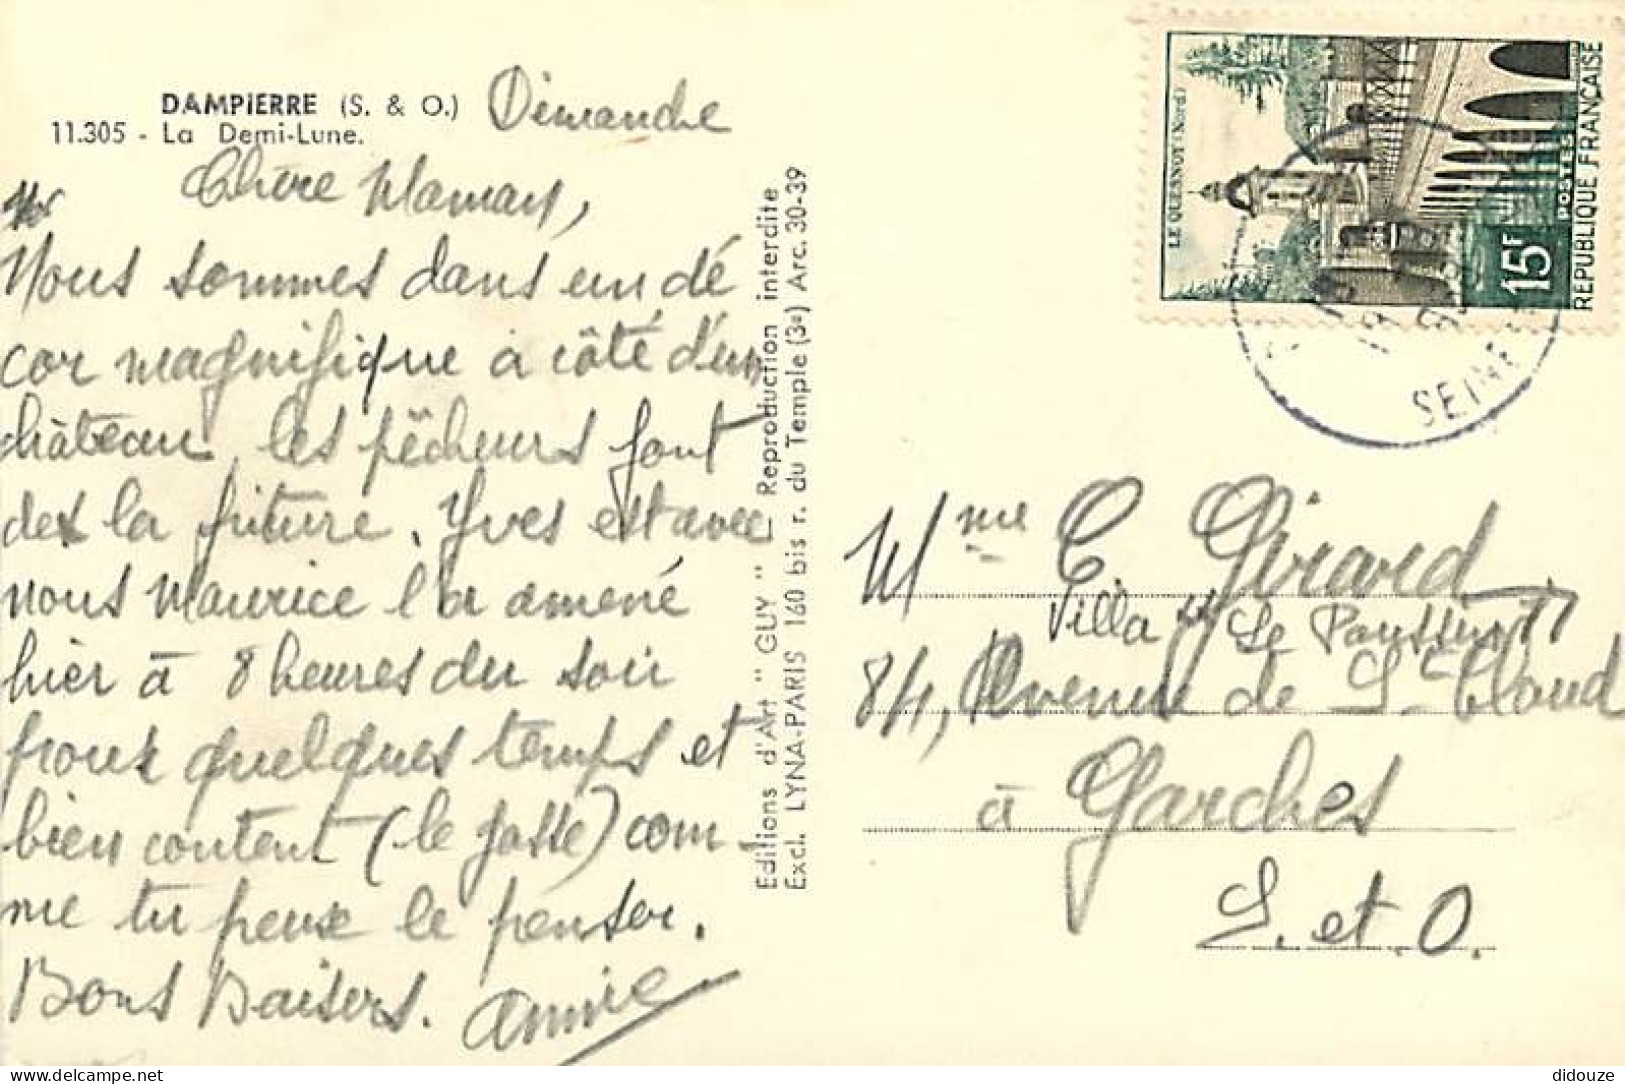 DAMPIERRE (S. & O.)
11.305 - La Demi-Lune.
Dimanche
Chère Maman,
Nous sommes dans un dé
cor magnifique à côté d'un
château, les pêcheurs font
de la friture. Yves est avec
nous Maurice l'a amené
hier à 8 heures du soir
pour quelques temps et
bien content (le gosse) com-
me tu peux le penser.
Bons Baisers. Annie
Editions d'Art "GUY" Reproduction interdite
Excl. LYNA-PARIS 160 bis r. du Temple (3e) Arc. 30-39
LE QUESNOY (Nord)
15F
POSTES
REPUBLIQUE FRANÇAISE
SEINE
Mme C Girard
Villa "Le
84, Avenue de St Cloud
à Garches
S. et O.
didouze